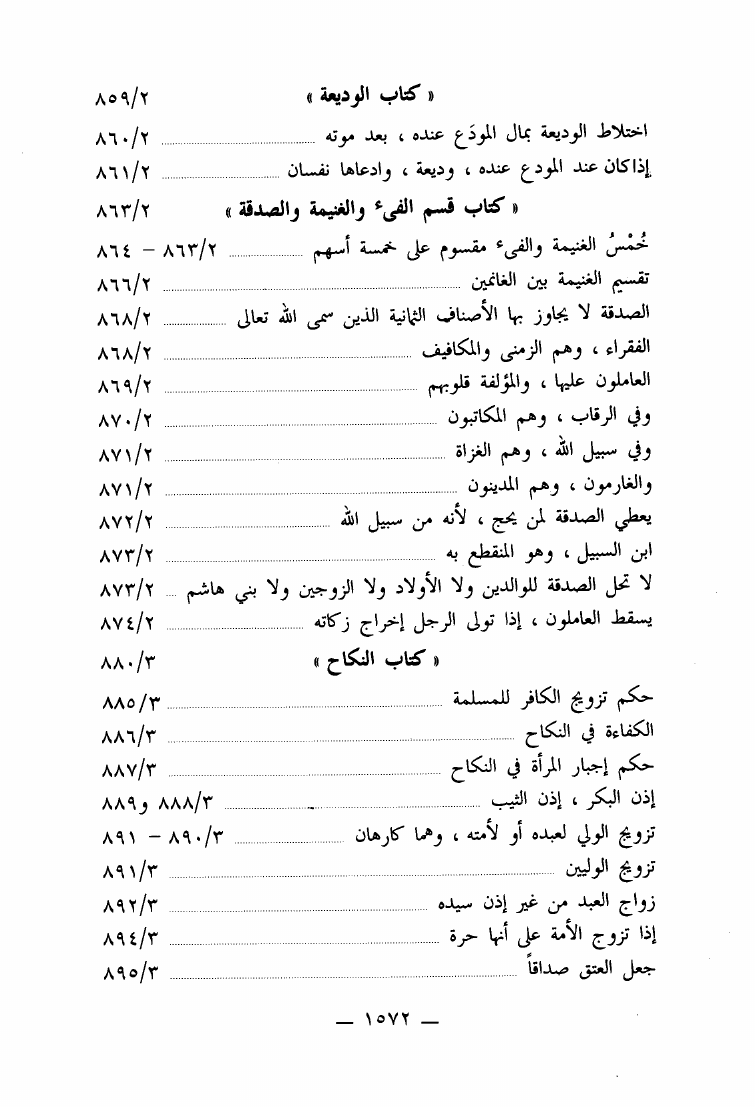 « كتاب الوديعة » ٨٥٩/٢
اختلاط الوديعة بمال المودَع عنده ، بعد موته ٨٦٠/٢
إذا كان عند المودع عنده ، وديعة ، وادعاها نفسان ٨٦١/٢
« كتاب قسم الفيء والغنيمة والصدقة » ٨٦٣/٢
خُمْسُ الغنيمة والفيء مقسوم على خمسة أسهم ٨٦٣/٢ – ٨٦٤
تقسيم الغنيمة بين الغانمين ٨٦٦/٢
الصدقة لا يجاوز بها الأصناف الثمانية الذين سمى الله تعالى ٨٦٨/٢
الفقراء ، وهم الزمنى والمكافيف ٨٦٨/٢
العاملون عليها ، والمؤلفة قلوبهم ٨٦٩/٢
وفي الرقاب ، وهم المكاتبون ٨٧٠/٢
وفي سبيل الله ، وهم الغزاة ٨٧١/٢
والغارمون ، وهم المدينون ٨٧١/٢
يعطي الصدقة لمن يحج ، لأنه من سبيل الله ٨٧٢/٢
ابن السبيل ، وهو المنقطع به ٨٧٣/٢
لا تحل الصدقة للوالدين ولا الأولاد ولا الزوجين ولا بني هاشم ٨٧٣/٢
يسقط العاملون ، إذا تولى الرجل إخراج زكاته ٨٧٤/٢
« كتاب النكاح » ٨٨٠/٣
حكم تزويج الكافر للمسلمة ٨٨٥/٣
الكفاءة في النكاح ٨٨٦/٣
حكم إجبار المرأة في النكاح ٨٨٧/٣
إذن البكر ، إذن الثيب ٨٨٨/٣ و٨٨٩
تزويج الولي لعبده أو لأمته ، وهما كارهان ٨٩٠/٣ – ٨٩١
تزويج الوليين ٨٩١/٣
زواج العبد من غير إذن سيده ٨٩٢/٣
إذا تزوج الأمة على أنها حرة ٨٩٤/٣
جعل العتق صداقاً ٨٩٥/٣
— ١٥٧٢ —